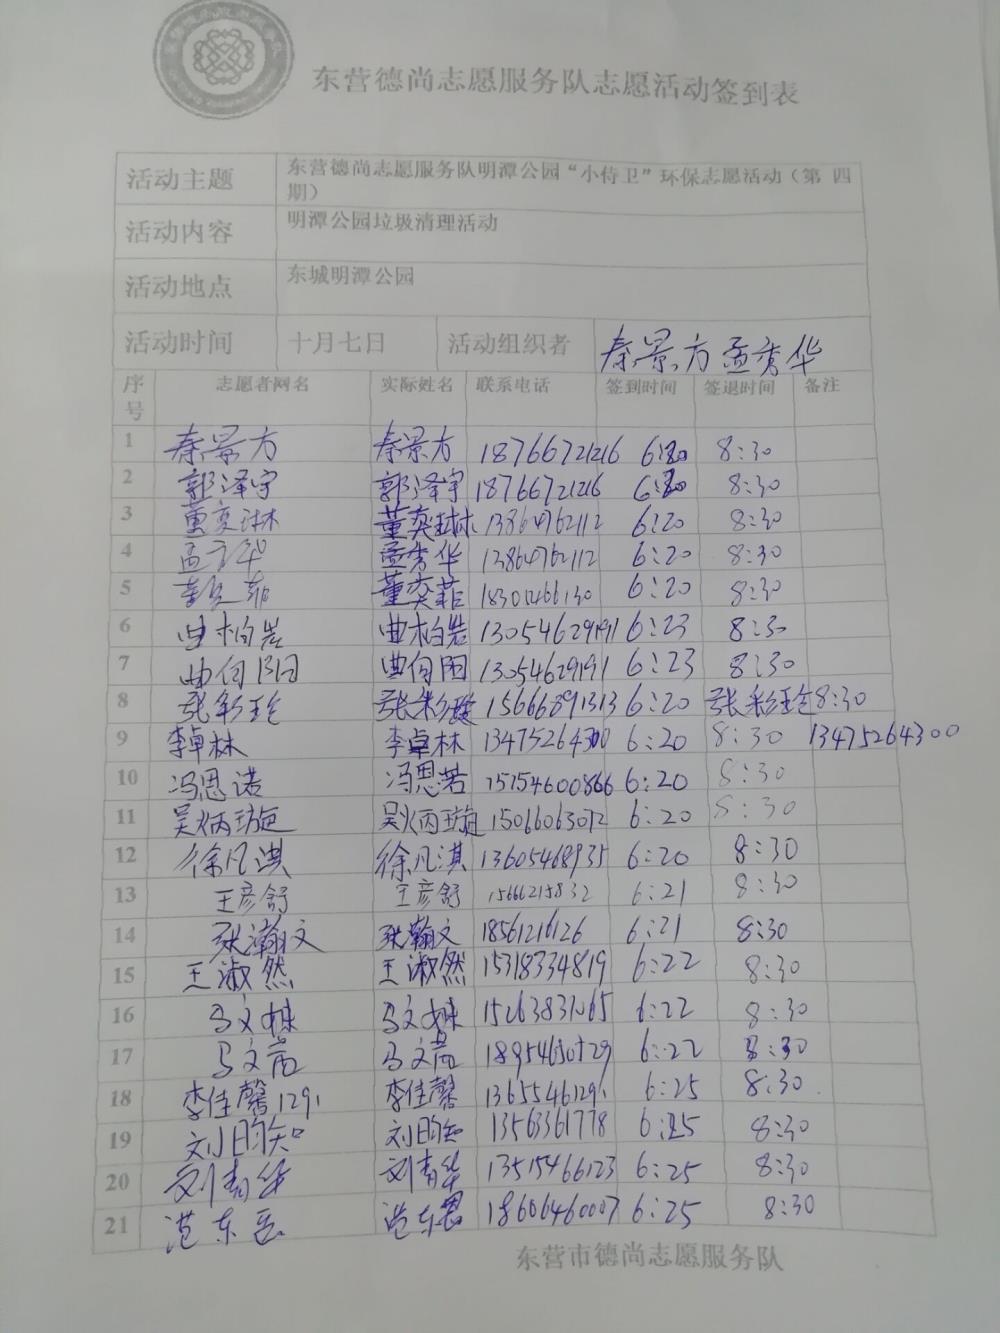 东营德尚志愿服务队志愿活动签到表
活动主题 东营德尚志愿服务队明潭公园“小侍卫”环保志愿活动（第 四
期）
活动内容 明潭公园垃圾清理活动
活动地点 东城明潭公园
活动时间 十月七日 活动组织者 秦景方 孟秀华
序号 志愿者网名 实际姓名 联系电话 签到时间 签退时间 备注
1 秦景方 秦景方 18766721216 6:20 8:30
2 郭泽宇 郭泽宇 18766721216 6:20 8:30
3 董奕琳 董奕琳 13864762112 6:20 8:30
4 孟秀华 孟秀华 13864762112 6:20 8:30
5 董奕菲 董奕菲 6:20 8:30
6 曲柏岩 曲柏岩 13054629191 6:23 8:30
7 曲向阳 曲向阳 13054629191 6:23 8:30
8 张彩玲 张彩玲 15666891313 6:20 张彩玲 8:30
9 李卓林 李卓林 13475264300 6:20 8:30 13475264300
10 冯思诺 冯思若 15754600866 6:20 8:30
11 吴炳璇 吴炳璇 15066063072 6:20 8:30
12 徐凡淇 徐凡淇 13605468935 6:20 8:30
13 王彦舒 王彦舒 15666215832 6:21 8:30
14 张瀚文 张瀚文 6:21 8:30
15 王淑然 王淑然 15318334819 6:22 8:30
16 马文姝 马文姝 6:22 8:30
17 马文 马文 6:22 8:30
18 李佳馨1291 李佳馨 13655461291 6:25 8:30
19 刘昀知 刘昀知 13563361778 6:25 8:30
20 刘青华 刘青华 13515466123 6:25 8:30
21 范东 范东 18606460007 6:25 8:30
东营市德尚志愿服务队